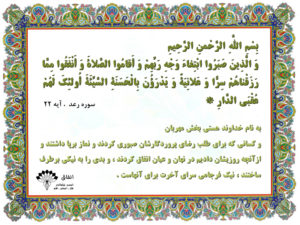 بِسْمِ اللَّهِ الرَّحْمنِ الرَّحِيمِ
وَ الَّذِينَ صَبَرُوا ابْتِغاءَ وَجْهِ رَبِّهِمْ وَ أَقامُوا الصَّلاةَ وَ أَنْفَقُوا مِمَّا
رَزَقْناهُمْ سِرًّا وَ عَلانِيَةً وَ يَدْرَؤُنَ بِالْحَسَنَةِ السَّيِّئَةَ أُولئِكَ لَهُمْ
عُقْبَى الدَّارِ
سوره رعد . آیه ۲۲
به نام خداوند هستی بخش مهربان
و کسانی که برای طلب رضای پروردگارشان صبوری کردند و نماز برپا داشتند و
ازآنچه روزیشان دادیم در نهان و عیان انفاق کردند ، و بدی را به نیکی برطرف
ساختند ، نیک فرجامی سرای آخرت برای آنهاست .
انفاق